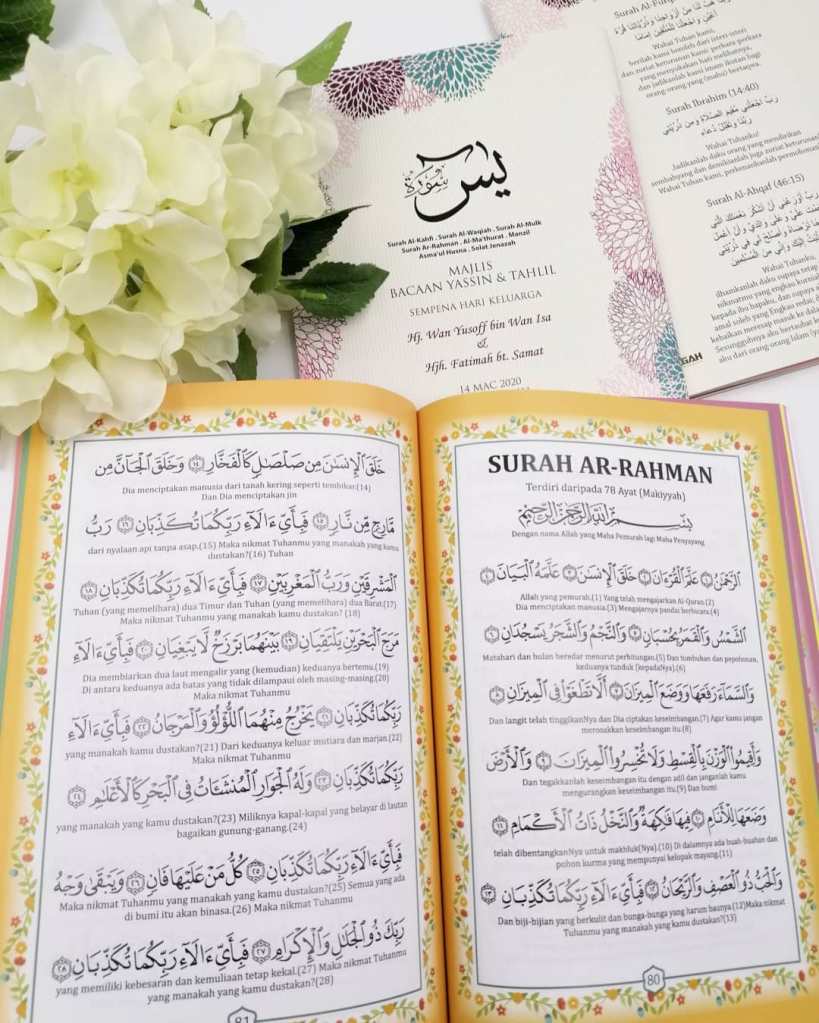 سورة يس
Surah Al-Kahfi . Surah Al-Waqiah . Surah Al-Mulk
Surah Ar-Rahman . Al-Ma'thurat . Manzil
Asma'ul Husna . Solat Jenazah
MAJLIS
BACAAN YASSIN & TAHLIL
SEMPENA HARI KELUARGA
Hj. Wan Yusoff bin Wan Isa
&
Hjh. Fatimah bt. Samat
14 MAC 2020
Surah Al-Fur
Wahai Tuhan kami,
berilah kami beroleh dari isteri-isteri
dan zuriat keturunan kami perkara-perkara
yang menyukakan hati melihatnya,
dan jadikanlah kami imam ikutan bagi
orang-orang yang (mahu) bertaqwa.
Surah Ibrahim (14:40)
رَبِّ اجْعَلْنِي مُقِيمَ الصَّلَاةِ وَمِن ذُرِّيَّتِي
رَبَّنَا وَتَقَبَّلْ دُعَاءِ
Wahai Tuhanku!
Jadikanlah daku orang yang mendirikan
sembahyang dan demikianlah juga zuriat keturunan
Wahai Tuhan kami, perkenankanlah permohonan
Surah Al-Ahqaf (46:15)
رَبِّ أَوْزِعْنِي أَنْ أَشْكُرَ نِعْمَتَكَ الَّتِي
Wahai Tuhanku,
ilhamkanlah daku supaya tetap
nikmatmu yang engkau kurniakan
kepada ibu bapaku, dan supaya
amal soleh yang Engkau redai,
kebaikan meresap masuk ke dalam
Sesungguhnya aku bertaubat
aku dari orang-orang Islam
GAH
SURAH AR-RAHMAN
Terdiri daripada 78 Ayat (Makiyyah)
بِسْمِ اللَّهِ الرَّحْمَٰنِ الرَّحِيمِ
Dengan nama Allah yang Maha Pemurah lagi Maha Penyayang
الرَّحْمَٰنُ ١ عَلَّمَ الْقُرْءَانَ ٢ خَلَقَ الْإِنسَٰنَ ٣ عَلَّمَهُ الْبَيَانَ ٤
Allah yang pemurah.(1) Yang telah mengajarkan Al-Quran.(2)
Dia menciptakan manusia.(3) Mengajarnya pandai berbicara.(4)
الشَّمْسُ وَالْقَمَرُ بِحُسْبَانٍ ٥ وَالنَّجْمُ وَالشَّجَرُ يَسْجُدَانِ ٦
Matahari dan bulan beredar menurut perhitungan.(5) Dan tumbuhan dan pepohonan,
keduanya tunduk (kepadaNya).(6)
وَالسَّمَاءَ رَفَعَهَا وَوَضَعَ الْمِيزَانَ ٧ أَلَّا تَطْغَوْا فِي الْمِيزَانِ ٨
Dan langit telah tinggikanNya dan Dia ciptakan keseimbangan.(7) Agar kamu jangan
merosakkan keseimbangan itu.(8)
وَأَقِيمُوا الْوَزْنَ بِالْقِسْطِ وَلَا تُخْسِرُوا الْمِيزَانَ ٩ وَالْأَرْضَ
Dan tegakkanlah keseimbangan itu dengan adil dan janganlah kamu
mengurangkan keseimbangan itu.(9) Dan bumi
وَضَعَهَا لِلْأَنَامِ ١٠ فِيهَا فَاكِهَةٌ وَالنَّخْلُ ذَاتُ الْأَكْمَامِ ١١
telah dibentangkanNya untuk makhluk(Nya).(10) Di dalamnya ada buah-buahan dan
pohon kurma yang mempunyai kelopak mayang.(11)
وَالْحَبُّ ذُو الْعَصْفِ وَالرَّيْحَانُ ١٢ فَبِأَيِّ ءَالَاءِ رَبِّكُمَا تُكَذِّبَانِ ١٣
Dan biji-bijian yang berkulit dan bunga-bunga yang harum baunya.(12)Maka nikmat
Tuhanmu yang manakah yang kamu dustakan?(13)
80
خَلَقَ الْإِنسَٰنَ مِن صَلْصَٰلٍ كَالْفَخَّارِ ١٤ وَخَلَقَ الْجَانَّ مِن
Dia menciptakan manusia dari tanah kering seperti tembikar.(14)
Dan Dia menciptakan jin
مَّارِجٍ مِّن نَّارٍ ١٥ فَبِأَيِّ ءَالَاءِ رَبِّكُمَا تُكَذِّبَانِ ١٦ رَبُّ
dari nyalaan api tanpa asap.(15) Maka nikmat Tuhanmu yang manakah yang kamu
dustakan?(16) Tuhan
الْمَشْرِقَيْنِ وَرَبُّ الْمَغْرِبَيْنِ ١٧ فَبِأَيِّ ءَالَاءِ رَبِّكُمَا تُكَذِّبَانِ ١٨
Tuhan (yang memelihara) dua Timur dan Tuhan (yang memelihara) dua Barat.(17)
Maka nikmat Tuhanmu yang manakah yang kamu dustakan? (18)
مَرَجَ الْبَحْرَيْنِ يَلْتَقِيَانِ ١٩ بَيْنَهُمَا بَرْزَخٌ لَّا يَبْغِيَانِ ٢٠ فَبِأَيِّ ءَالَاءِ
Dia membiarkan dua laut mengalir yang (kemudian) keduanya bertemu.(19)
Di antara keduanya ada batas yang tidak dilampaui oleh masing-masing.(20)
Maka nikmat Tuhanmu
رَبِّكُمَا تُكَذِّبَانِ ٢١ يَخْرُجُ مِنْهُمَا اللُّؤْلُؤُ وَالْمَرْجَانُ ٢٢ فَبِأَيِّ ءَالَاءِ
yang manakah yang kamu dustakan?(21) Dari keduanya keluar mutiara dan marjan.(22)
Maka nikmat Tuhanmu
رَبِّكُمَا تُكَذِّبَانِ ٢٣ وَلَهُ الْجَوَارِ الْمُنشَـَٔاتُ فِي الْبَحْرِ كَالْأَعْلَٰمِ ٢٤
yang manakah yang kamu dustakan?(23) Miliknya kapal-kapal yang belayar di lautan
bagaikan gunung-ganang.(24)
فَبِأَيِّ ءَالَاءِ رَبِّكُمَا تُكَذِّبَانِ ٢٥ كُلُّ مَنْ عَلَيْهَا فَانٍ ٢٦ وَيَبْقَىٰ وَجْهُ
Maka nikmat Tuhanmu yang manakah yang kamu dustakan?(25) Semua yang ada
di bumi itu akan binasa.(26) Maka nikmat Tuhanmu
رَبِّكَ ذُو الْجَلَٰلِ وَالْإِكْرَامِ ٢٧ فَبِأَيِّ ءَالَاءِ رَبِّكُمَا تُكَذِّبَانِ ٢٨
yang memiliki kebesaran dan kemuliaan tetap kekal.(27) Maka nikmat Tuhanmu
yang manakah yang kamu dustakan?(28)
81